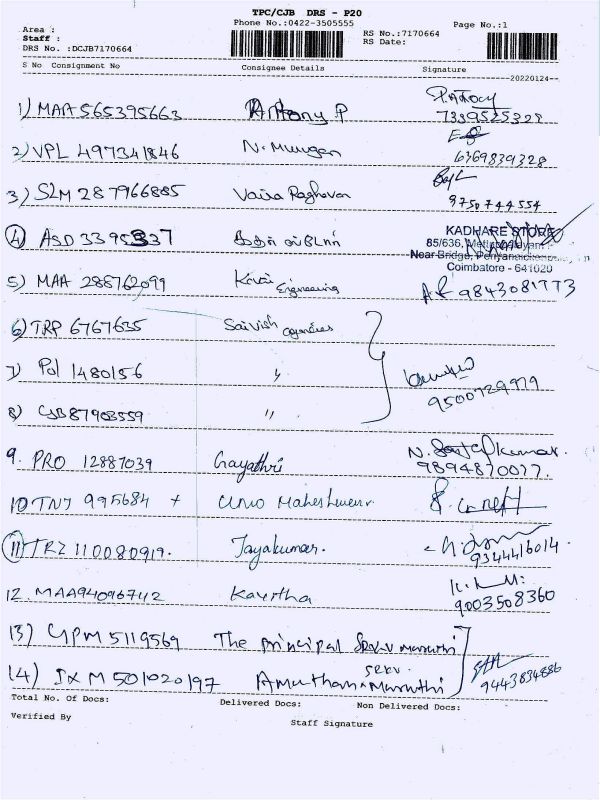 TPC/CJB DRS - P20
Phone No.:0422-3505555
Page No.:1
Area :
Staff :
DRS No. :DCJB7170664
RS No.:7170664
RS Date:
S No Consignment No Consignee Details Signature
20220124
1) MAA 565395663 Antony P
7339525328
2) VPL 497341846 N. Murugan
6769839328
3) SLM 287966885 Vaira Raghavan
9750744554
4) ASD 3395337
KADHARE STORE
85/636,
Near Bridge,
Coimbatore - 641020
5) MAA 288762099 Kovai Engineering
9843081773
6) TRP 6767635 Saivish Agencies
7) Pol 1480156 "
9500729979
8) CJB 87903559 "
9. PRO 12887039 Gayathri
9894870077.
10 TNJ 995684 + Uma
11) TRZ 110080919. Jayakumar.
9344416014.
12. MAA94096742 Kavitha
9003508360
13) GPM 5119569 The Principal SRKV Maruthi
14) IXM 501020197 Amuthan SRKV Maruthi
9443834886
Total No. Of Docs: Delivered Docs: Non Delivered Docs:
Verified By
Staff Signature